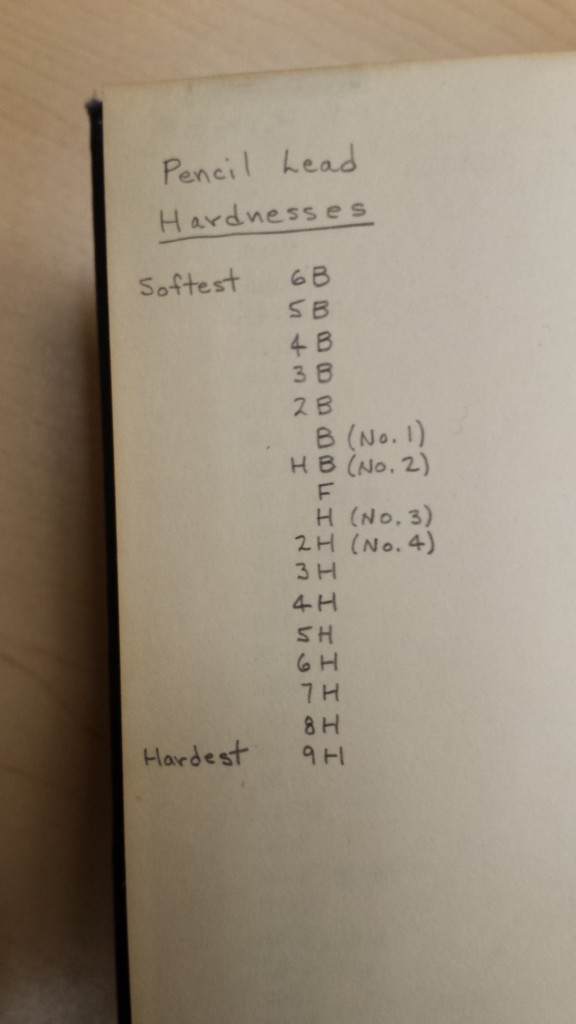 Pencil Lead
Hardnesses
Softest 6B
5B
4B
3B
2B
B (No. 1)
HB (No. 2)
F
H (No. 3)
2H (No. 4)
3H
4H
5H
6H
7H
8H
Hardest 9H